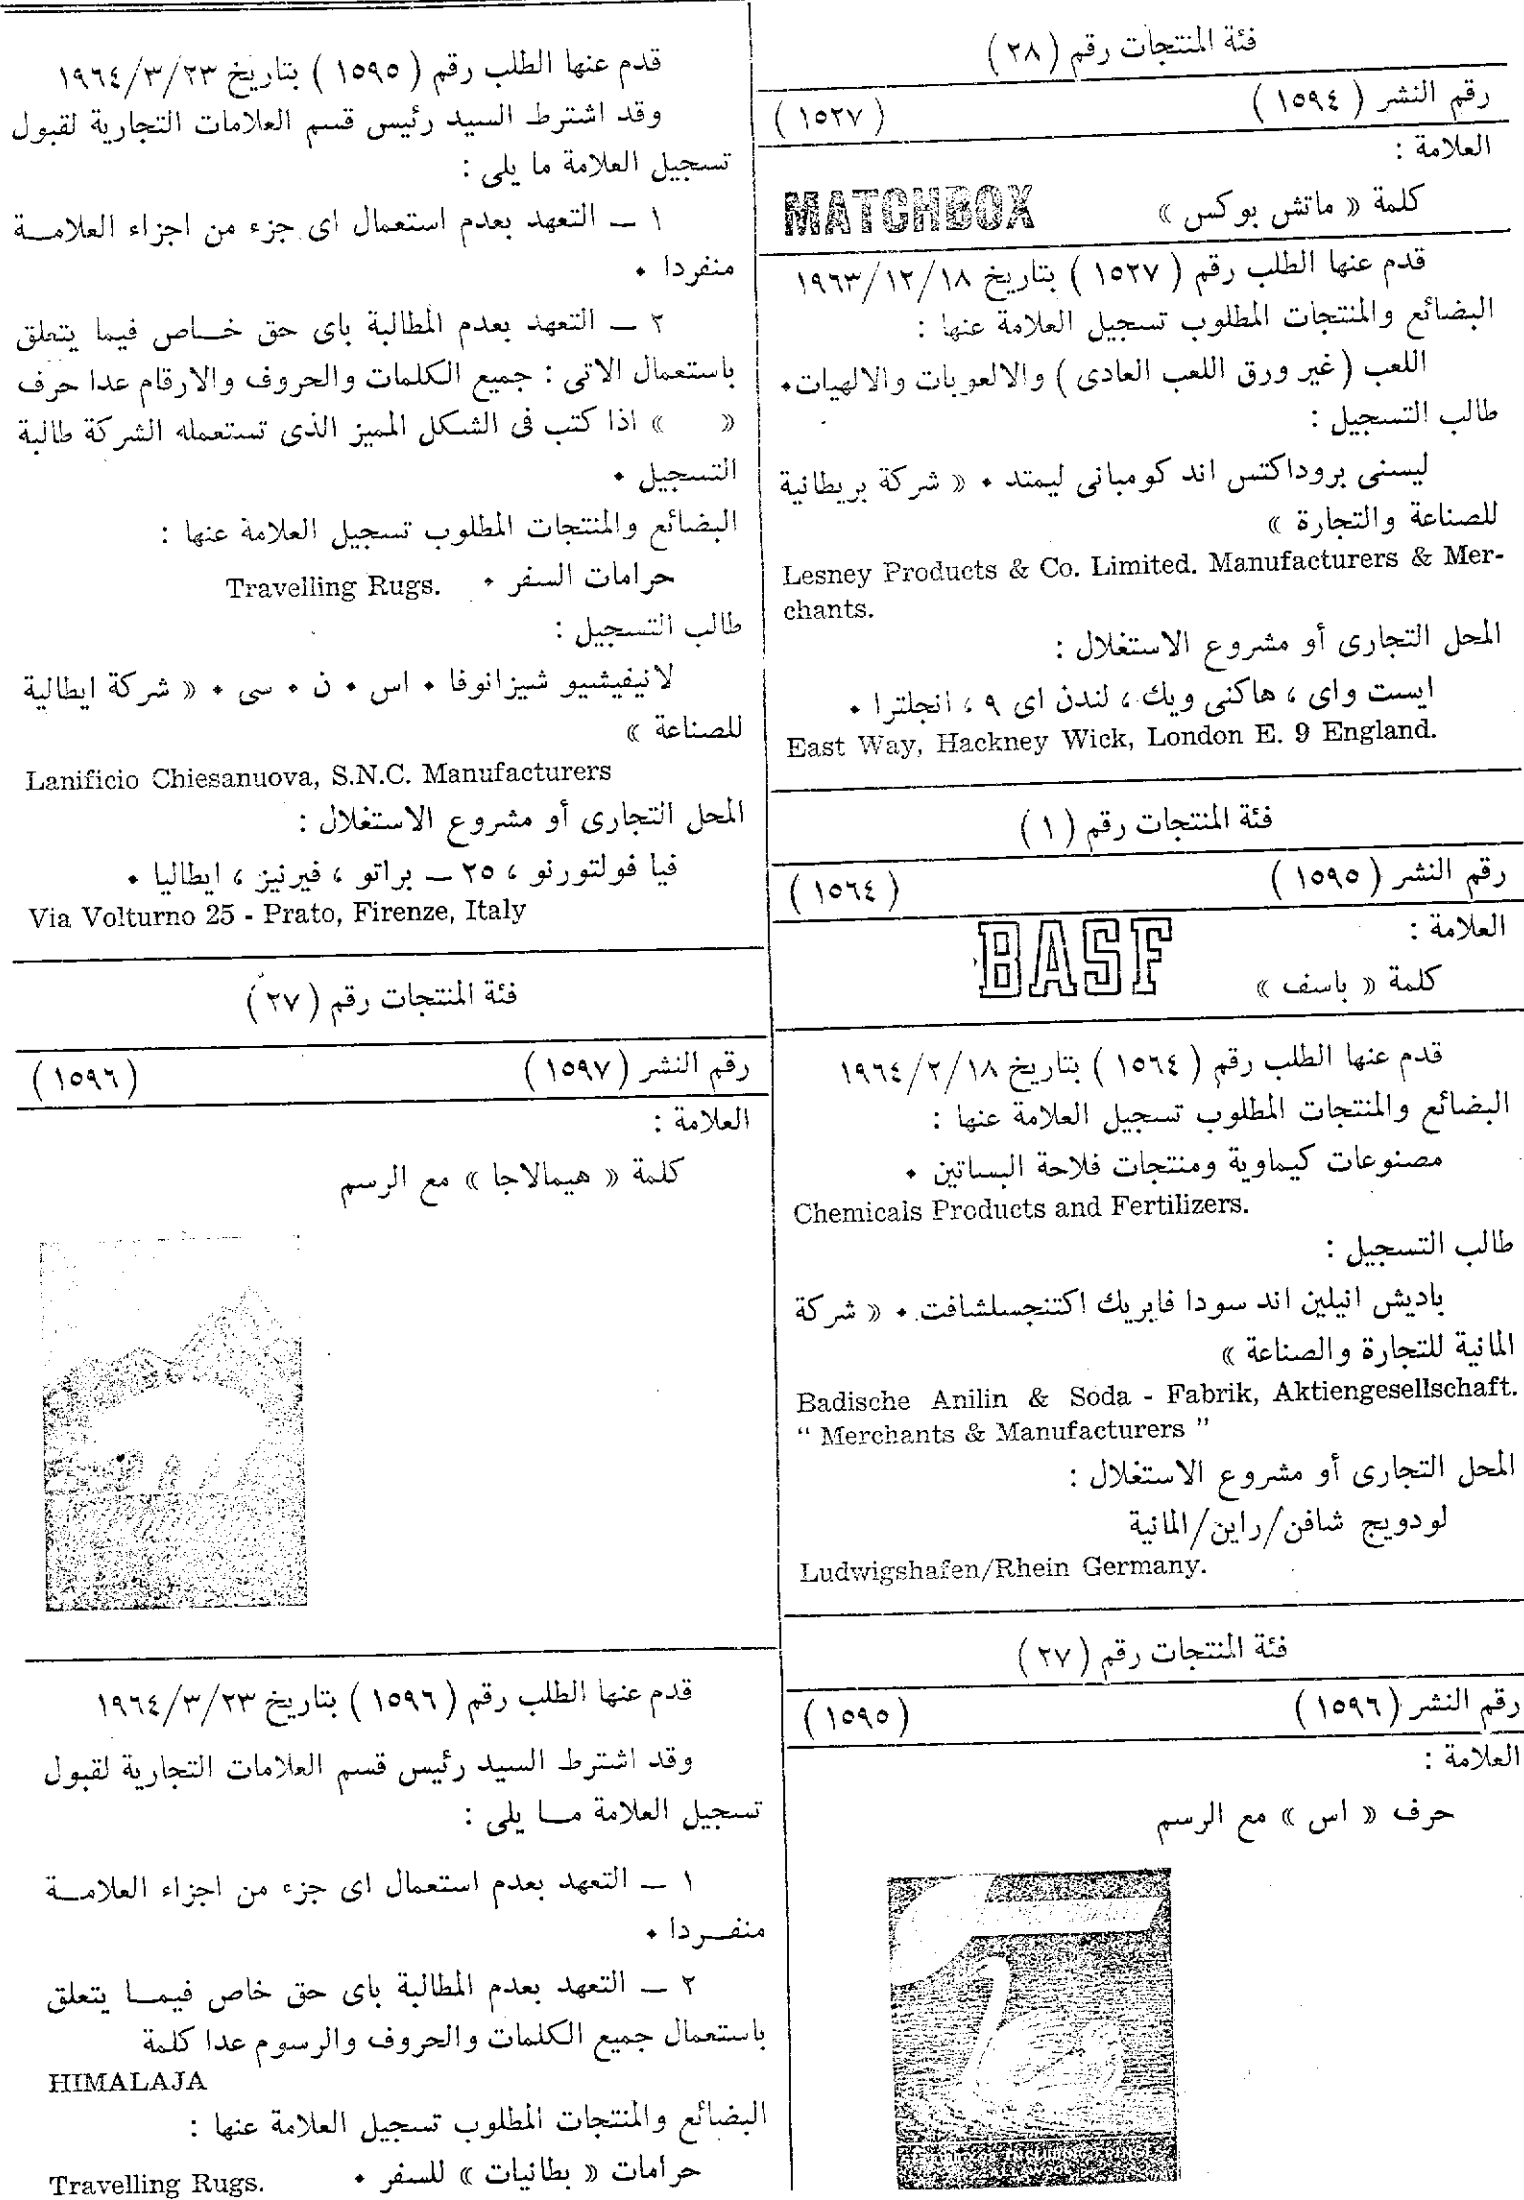 فئة المنتجات رقم ( ٢٨ )
رقم النشر ( ١٥٩٤ ) ( ١٥٢٧ )
العلامة :
كلمة « ماتش بوكس » MATCHBOX
قدم عنها الطلب رقم ( ١٥٢٧ ) بتاريخ ١٩٦٣/١٢/١٨
البضائع والمنتجات المطلوب تسجيل العلامة عنها :
اللعب ( غير ورق اللعب العادى ) والالعوبات والالهيات٠
طالب التسجيل :
ليسنى بروداكتس اند كومبانى ليمتد ٠ « شركة بريطانية
للصناعة والتجارة »
Lesney Products & Co. Limited. Manufacturers & Mer-
chants.
المحل التجارى أو مشروع الاستغلال :
ايست واى ، هاكنى ويك ، لندن اى ٩ ، انجلترا ٠
East Way, Hackney Wick, London E. 9 England.
فئة المنتجات رقم ( ١ )
رقم النشر ( ١٥٩٥ ) ( ١٥٦٤ )
العلامة :
كلمة « باسف » BASF
قدم عنها الطلب رقم ( ١٥٦٤ ) بتاريخ ١٩٦٤/٢/١٨
البضائع والمنتجات المطلوب تسجيل العلامة عنها :
مصنوعات كيماوية ومنتجات فلاحة البساتين ٠
Chemicals Products and Fertilizers.
طالب التسجيل :
باديش انيلين اند سودا فابريك اكتنجسلشافت ٠ « شركة
المانية للتجارة والصناعة »
Badische Anilin & Soda - Fabrik, Aktiengesellschaft.
“ Merchants & Manufacturers ”
المحل التجارى أو مشروع الاستغلال :
لودويج شافن/راين/المانية
Ludwigshafen/Rhein Germany.
فئة المنتجات رقم ( ٢٧ )
رقم النشر ( ١٥٩٦ ) ( ١٥٩٥ )
العلامة :
حرف « اس » مع الرسم
قدم عنها الطلب رقم ( ١٥٩٥ ) بتاريخ ١٩٦٤/٣/٢٣
وقد اشترط السيد رئيس قسم العلامات التجارية لقبول
تسجيل العلامة ما يلى :
١ ــ التعهد بعدم استعمال اى جزء من اجزاء العلامــة
منفردا ٠
٢ ــ التعهد بعدم المطالبة باى حق خــاص فيما يتعلق
باستعمال الاتى : جميع الكلمات والحروف والارقام عدا حرف
« » اذا كتب فى الشكل المميز الذى تستعمله الشركة طالبة
التسجيل ٠
البضائع والمنتجات المطلوب تسجيل العلامة عنها :
حرامات السفر ٠ Travelling Rugs.
طالب التسجيل :
لانيفيشيو شيزانوفا ٠ اس ٠ ن ٠ سى ٠ « شركة ايطالية
للصناعة »
Lanificio Chiesanuova, S.N.C. Manufacturers
المحل التجارى أو مشروع الاستغلال :
فيا فولتورنو ، ٢٥ ــ براتو ، فيرنيز ، ايطاليا ٠
Via Volturno 25 - Prato, Firenze, Italy
فئة المنتجات رقم ( ٢٧ )
رقم النشر ( ١٥٩٧ ) ( ١٥٩٦ )
العلامة :
كلمة « هيمالاجا » مع الرسم
قدم عنها الطلب رقم ( ١٥٩٦ ) بتاريخ ١٩٦٤/٣/٢٣
وقد اشترط السيد رئيس قسم العلامات التجارية لقبول
تسجيل العلامة مــا يلى :
١ ــ التعهد بعدم استعمال اى جزء من اجزاء العلامــة
منفــردا ٠
٢ ــ التعهد بعدم المطالبة باى حق خاص فيمــا يتعلق
باستعمال جميع الكلمات والحروف والرسوم عدا كلمة
HIMALAJA
البضائع والمنتجات المطلوب تسجيل العلامة عنها :
حرامات « بطانيات » للسفر ٠ Travelling Rugs.